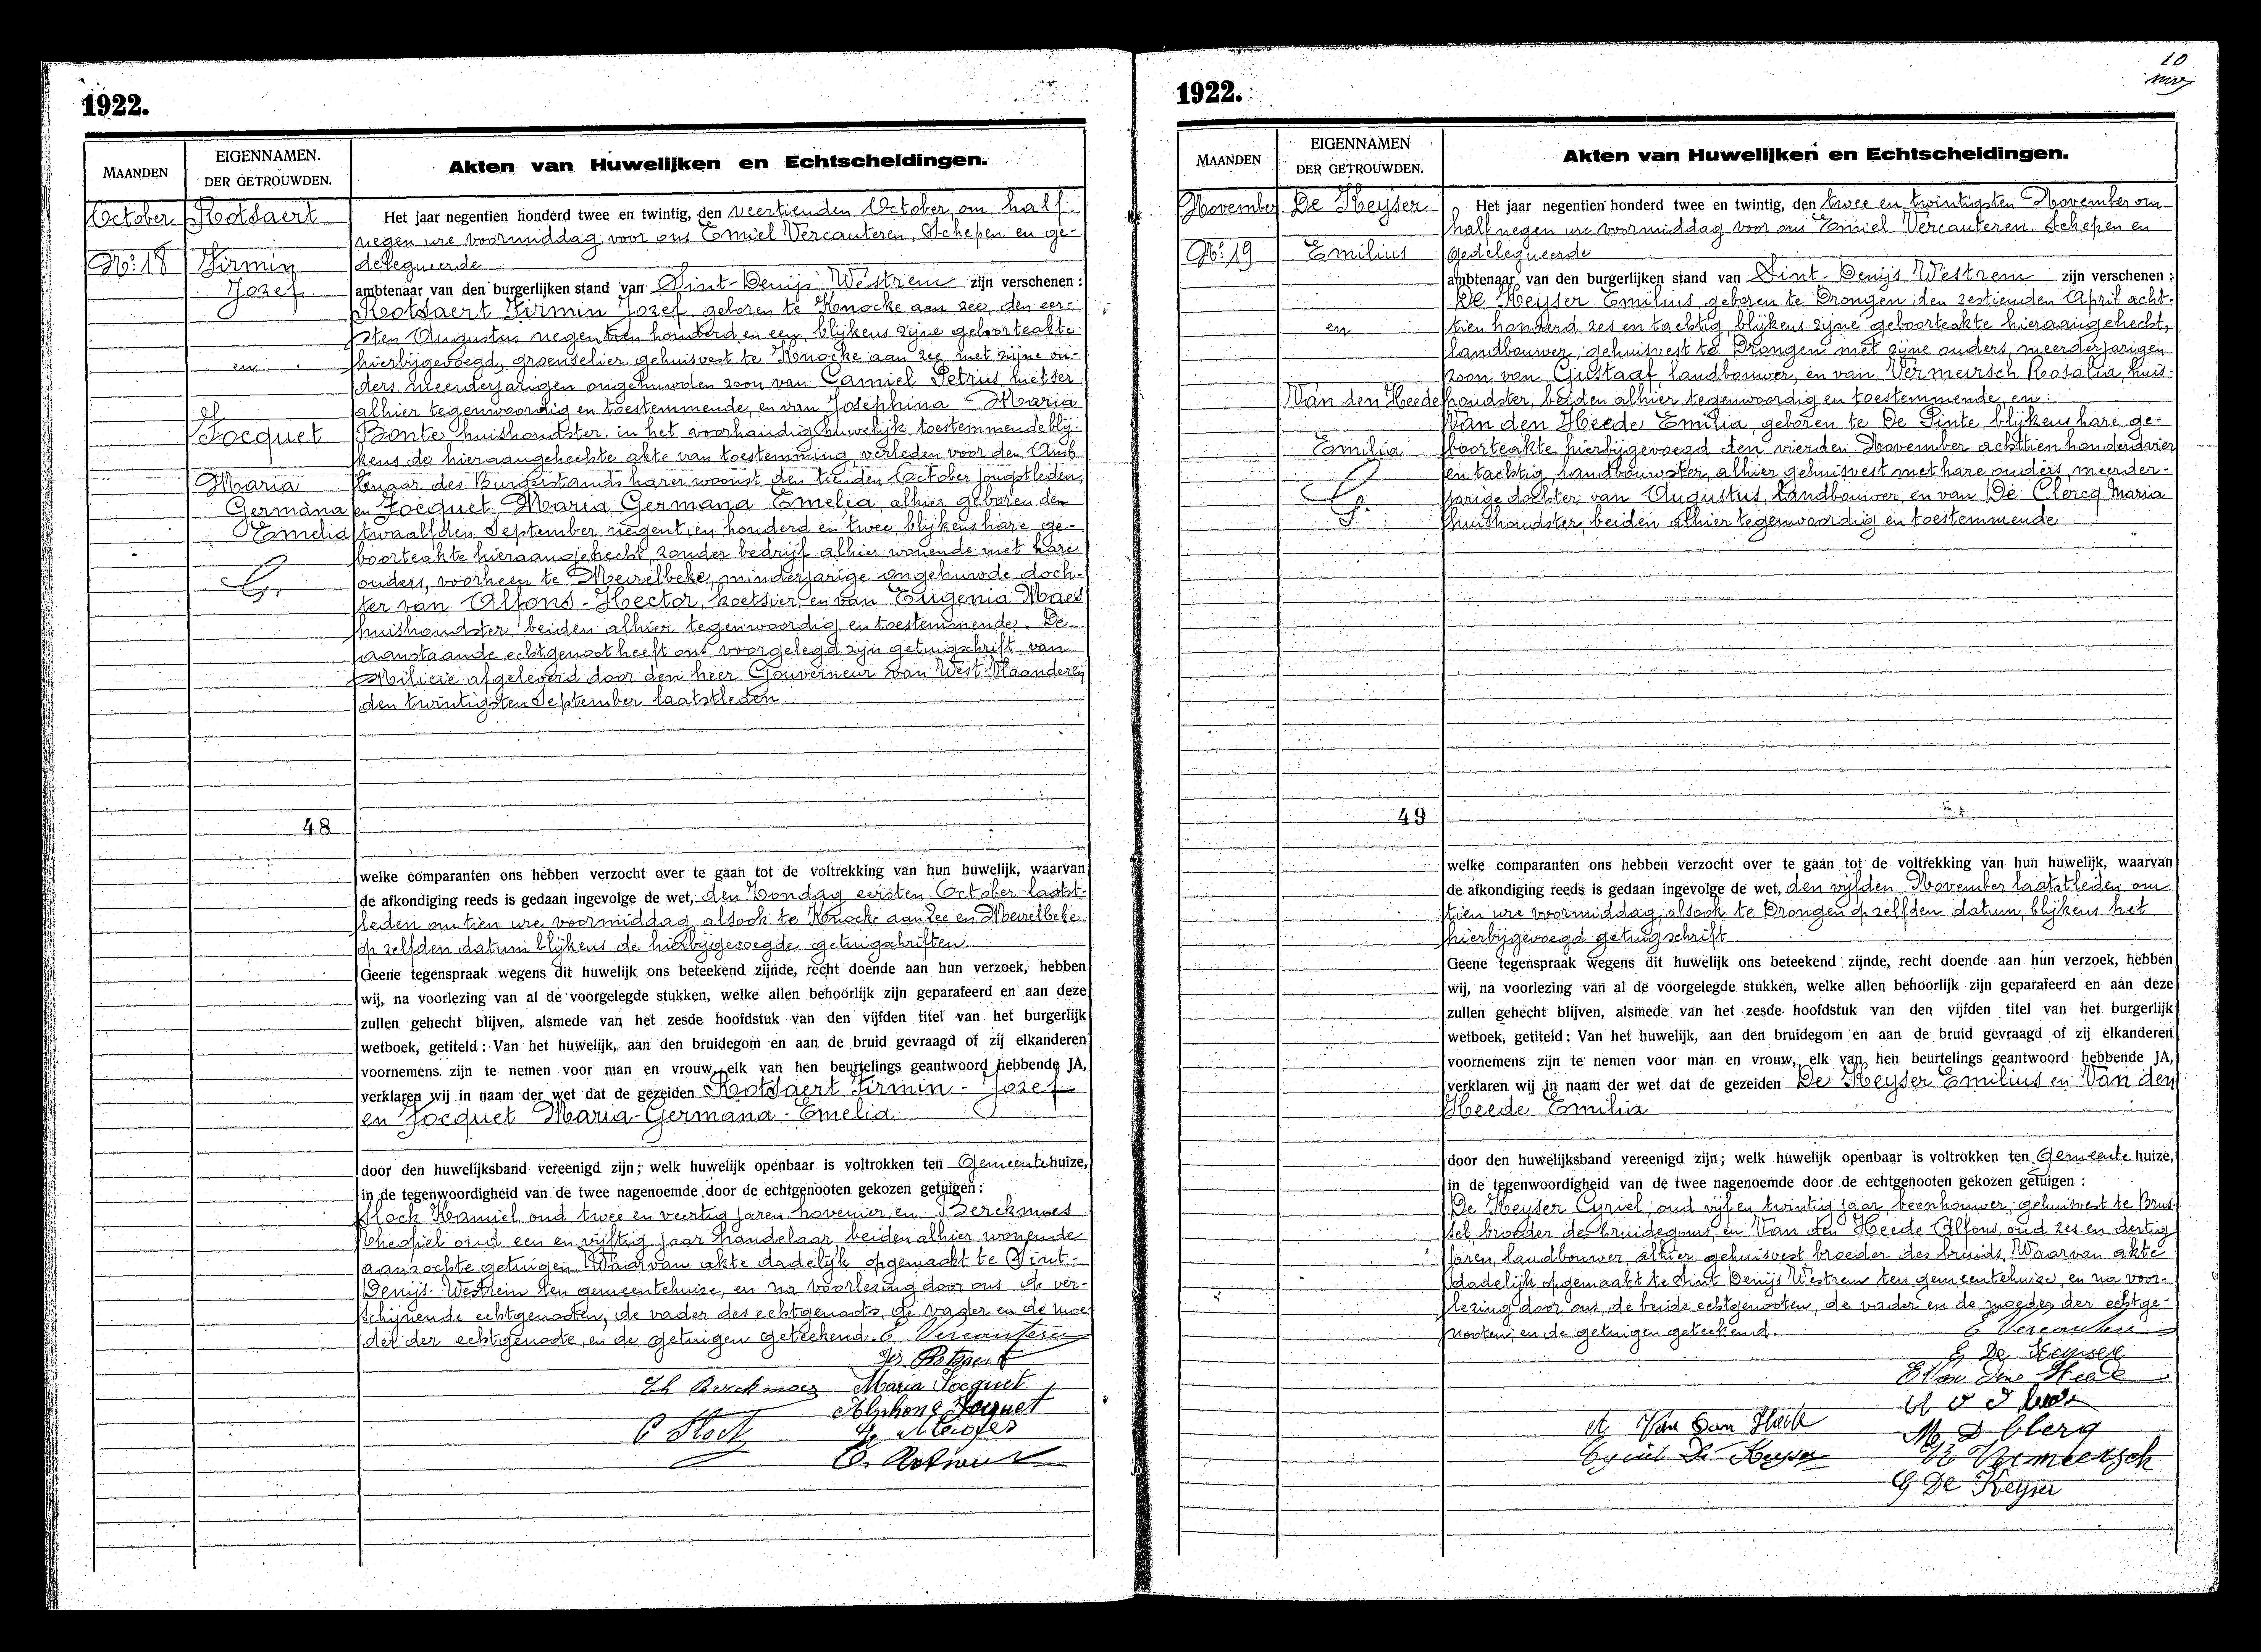 1922.
MAANDEN
EIGENNAMEN.
DER GETROUWDEN.
Akten van Huwelijken en Echtscheidingen.
October
No: 18
Rotsaert
Firmin
Jozef
en
Jocquet
Maria
Germana
Emelia
G.
48
Het jaar negentien honderd twee en twintig, den veertienden October om half
negen ure voormiddag voor ons Emiel Vercauteren, Schepen en ge-
delegueerde
ambtenaar van den burgerlijken stand van Sint-Denijs Westrem zijn verschenen:
Rotsaert Firmin Jozef, geboren te Knocke aan zee, den eer-
sten Augustus negentien honderd en een, blijkens zijne geboorteakte
hierbijgevoegd, groenselier, gehuisvest te Knocke aan zee met zijne ou-
ders, meerderjarigen ongehuwden zoon van Camiel Petrus, metser
alhier tegenwoordig en toestemmende, en van Josephina Maria
Bonte huishoudster, in het voorhandig huwelijk toestemmende blij-
kens de hieraangehechte akte van toestemming, verleden voor den Amb
tenaar des Burgerstands harer woonst, den tienden October jongstleden,
en Jocquet Maria Germana Emelia, alhier geboren den
twaalfden September negentien honderd en twee blijkens hare ge-
boorteakte hieraangehecht, zonder bedrijf alhier wonende met hare
ouders, voorheen te Meirelbeke, minderjarige ongehuwde doch-
ter van Alfons-Hector, koetsier, en van Eugenia Maes
huishoudster, beiden alhier tegenwoordig en toestemmende. De
aanstaande echtgenoot heeft ons voorgelegd zijn getuigschrift van
Milicie afgeleverd door den heer Gouverneur van West-Vlaanderen
den twintigsten September laatstleden.
welke comparanten ons hebben verzocht over te gaan tot de voltrekking van hun huwelijk, waarvan
de afkondiging reeds is gedaan ingevolge de wet, den Zondag eersten October laatst-
leden om tien ure voormiddag alsook te Knocke aan Zee en Meirelbeke
op zelfden datum blijkens de hierbijgevoegde getuigschriften
Geene tegenspraak wegens dit huwelijk ons beteekend zijnde, recht doende aan hun verzoek, hebben
wij, na voorlezing van al de voorgelegde stukken, welke allen behoorlijk zijn geparafeerd en aan deze
zullen gehecht blijven, alsmede van het zesde hoofdstuk van den vijfden titel van het burgerlijk
wetboek, getiteld: Van het huwelijk, aan den bruidegom en aan de bruid gevraagd of zij elkanderen
voornemens zijn te nemen voor man en vrouw, elk van hen beurtelings geantwoord hebbende JA,
verklaren wij in naam der wet dat de gezeiden Rotsaert Firmin-Jozef
en Jocquet Maria-Germana-Emelia
door den huwelijksband vereenigd zijn; welk huwelijk openbaar is voltrokken ten Gemeentehuize,
in de tegenwoordigheid van de twee nagenoemde door de echtgenooten gekozen getuigen:
Hock Kamiel, oud twee en veertig jaren hovenier, en Berckmoes
Theofiel oud een en vijftig jaar handelaar, beiden alhier wonende
aanzochte getuigen. Waarvan akte dadelijk opgemaakt te Sint-
Denijs-Westrem ten gemeentehuize, en na voorlezing door ons de ver-
schijnende echtgenooten, de vader des echtgenoots, de vader en de moe
der der echtgenoote, en de getuigen geteekend. E Vercauteren
Fir. Rotsaert
Th Berckmoes Maria Jocquet
Alphons Jocquet
1922.
10
MAANDEN
EIGENNAMEN
DER GETROUWDEN.
Akten van Huwelijken en Echtscheidingen.
November
No: 19
De Keyser
Emilius
en
Van den Heede
Emilia
G.
49
Het jaar negentien honderd twee en twintig, den twee en twintigsten November om
half negen ure voormiddag voor ons Emiel Vercauteren, Schepen en
gedelegueerde
ambtenaar van den burgerlijken stand van Sint-Denijs Westrem zijn verschenen:
De Keyser Emilius, geboren te Drongen den zestienden April acht-
tien honderd zes en tachtig, blijkens zijne geboorteakte hieraangehecht,
landbouwer, gehuisvest te Drongen met zijne ouders, meerderjarigen
zoon van Gustaaf, landbouwer, en van Vermeirsch Rosalia, huis-
houdster, beiden alhier tegenwoordig en toestemmende, en:
Van den Heede Emilia, geboren te De Pinte, blijkens hare ge-
boorteakte hierbijgevoegd den vierden November achttien honderd vier
en tachtig, landbouwster, alhier gehuisvest met hare ouders, meerder-
jarige dochter van Augustus, landbouwer, en van De Clercq Maria
huishoudster, beiden alhier tegenwoordig en toestemmende
welke comparanten ons hebben verzocht over te gaan tot de voltrekking van hun huwelijk, waarvan
de afkondiging reeds is gedaan ingevolge de wet, den vijfden November laatstleden om
tien ure voormiddag, alsook te Drongen op zelfden datum, blijkens het
hierbijgevoegd getuigschrift
Geene tegenspraak wegens dit huwelijk ons beteekend zijnde, recht doende aan hun verzoek, hebben
wij, na voorlezing van al de voorgelegde stukken, welke allen behoorlijk zijn geparafeerd en aan deze
zullen gehecht blijven, alsmede van het zesde hoofdstuk van den vijfden titel van het burgerlijk
wetboek, getiteld: Van het huwelijk, aan den bruidegom en aan de bruid gevraagd of zij elkanderen
voornemens zijn te nemen voor man en vrouw, elk van hen beurtelings geantwoord hebbende JA,
verklaren wij in naam der wet dat de gezeiden De Keyser Emilius en Van den
Heede Emilia
door den huwelijksband vereenigd zijn; welk huwelijk openbaar is voltrokken ten Gemeente huize,
in de tegenwoordigheid van de twee nagenoemde door de echtgenooten gekozen getuigen:
De Keyser Cyriel, oud vijf en twintig jaar, beenhouwer, gehuisvest te Brus-
sel, broeder des bruidegoms, en Van den Heede Alfons, oud zes en dertig
jaren, landbouwer, alhier gehuisvest, broeder des bruids. Waarvan akte
dadelijk opgemaakt te Sint Denijs Westrem ten gemeentehuize, en na voor-
lezing door ons, de beide echtgenooten, de vader en de moeder der echtge-
nooten, en de getuigen geteekend.
E Vercauteren
E De Keyser
E Van den Heede
A Van Den Heede
M D Clerq
Cyriel De Keyser
R Vermeersch
G De Keyser